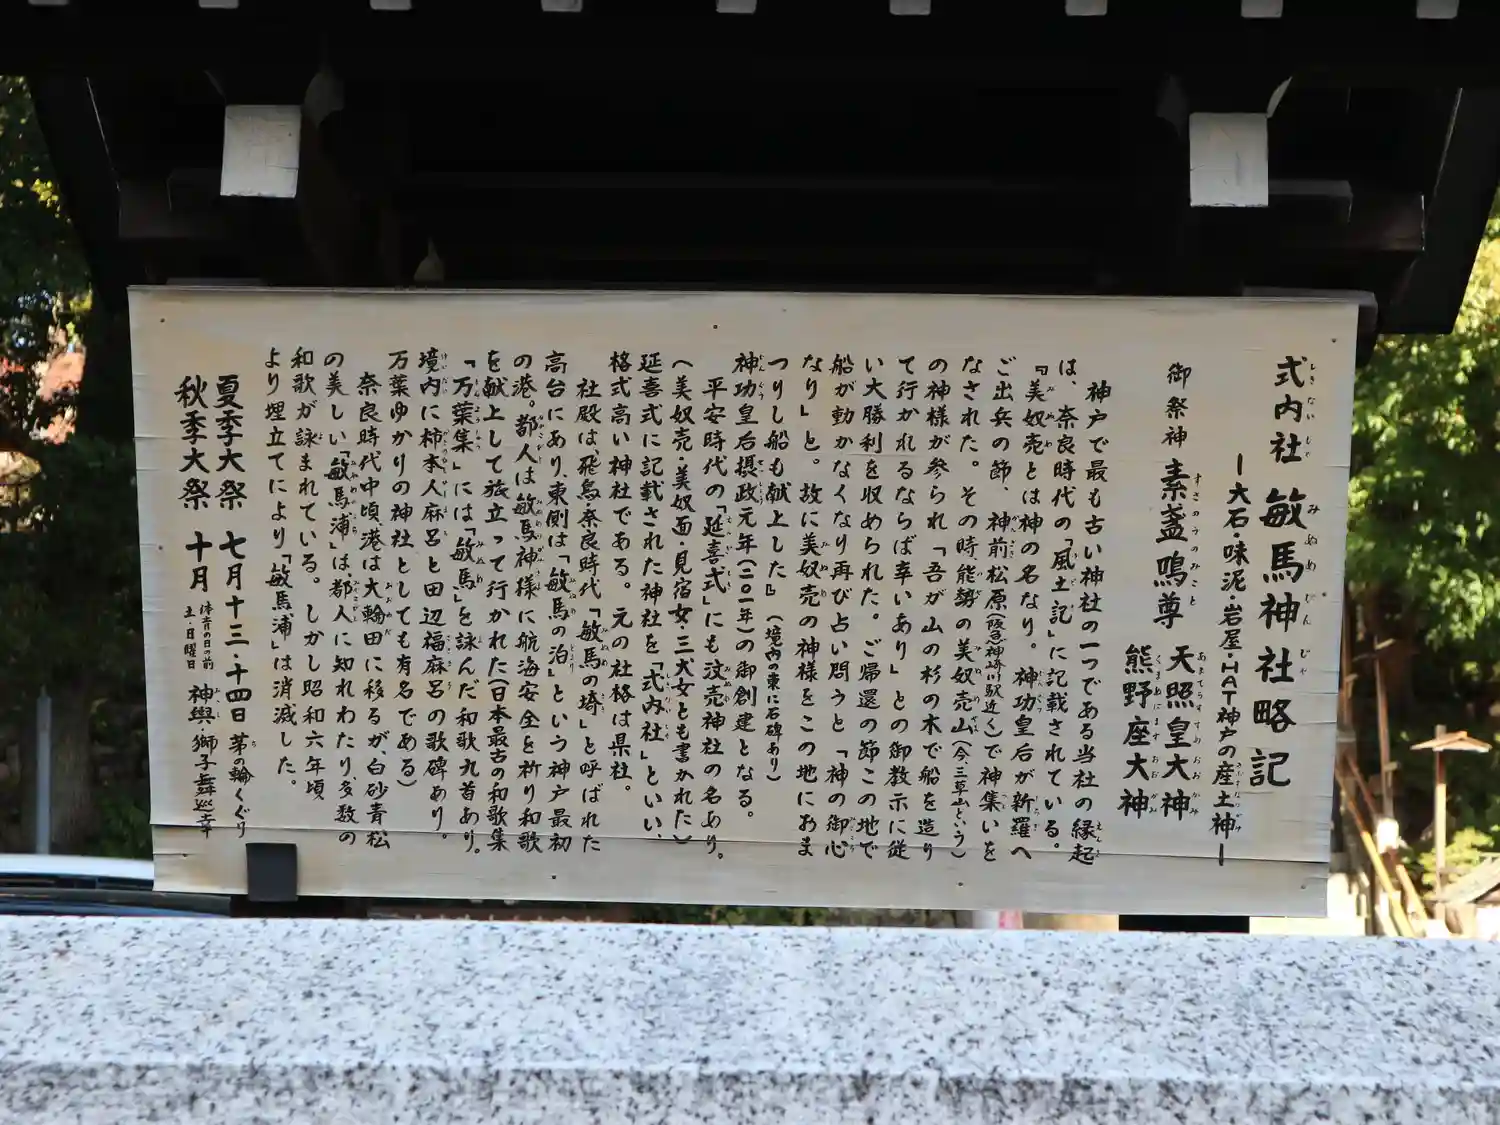 式内社 敏馬神社略記
ー大石・味泥・岩屋・HAT神戸の産土神ー
御祭神 素盞鳴尊 天照皇大神
熊野座大神
神戸で最も古い神社の一つである当社の縁起
は、奈良時代の『風土記』に記載されている。
『美奴売とは神の名なり。神功皇后が新羅へ
ご出兵の節、神前松原(阪急神崎川駅近く)で神集いを
なされた。その時能勢の美奴売山(今、三草山という)
の神様が参られ「吾が山の杉の木で船を造り
て行かれるならば幸いあり」との御教示に従
い大勝利を収められた。ご帰還の節この地で
船が動かなくなり再び占い問うと「神の御心
なり」と。故に美奴売の神様をこの地におま
つりし船も献上した』(境内の東に石碑あり)
神功皇后摂政元年(二〇一年)の御創建となる。
平安時代の『延喜式』にも汶売神社の名あり。
(美奴売・美奴面・見宿女・三犬女とも書かれた)
延喜式に記載された神社を「式内社」といい、
格式高い神社である。元の社格は県社。
社殿は、飛鳥・奈良時代「敏馬の埼」と呼ばれた
高台にあり、東側は「敏馬の泊」という神戸最初
の港。都人は敏馬神様に航海安全を祈り和歌
を献上して旅立って行かれた(日本最古の和歌集
『万葉集』には「敏馬」を詠んだ和歌九首あり。
境内に柿本人麻呂と田辺福麻呂の歌碑あり。
万葉ゆかりの神社としても有名である)
奈良時代中頃、港は大輪田に移るが、白砂青松
の美しい「敏馬浦」は都人に知れわたり、多数の
和歌が詠まれている。しかし昭和六年頃
より埋立てにより「敏馬浦」は消滅した。
夏季大祭 七月十三・十四日 茅の輪くぐり
秋季大祭 十月 体育の日の前 土・日曜日 神輿・獅子舞巡幸